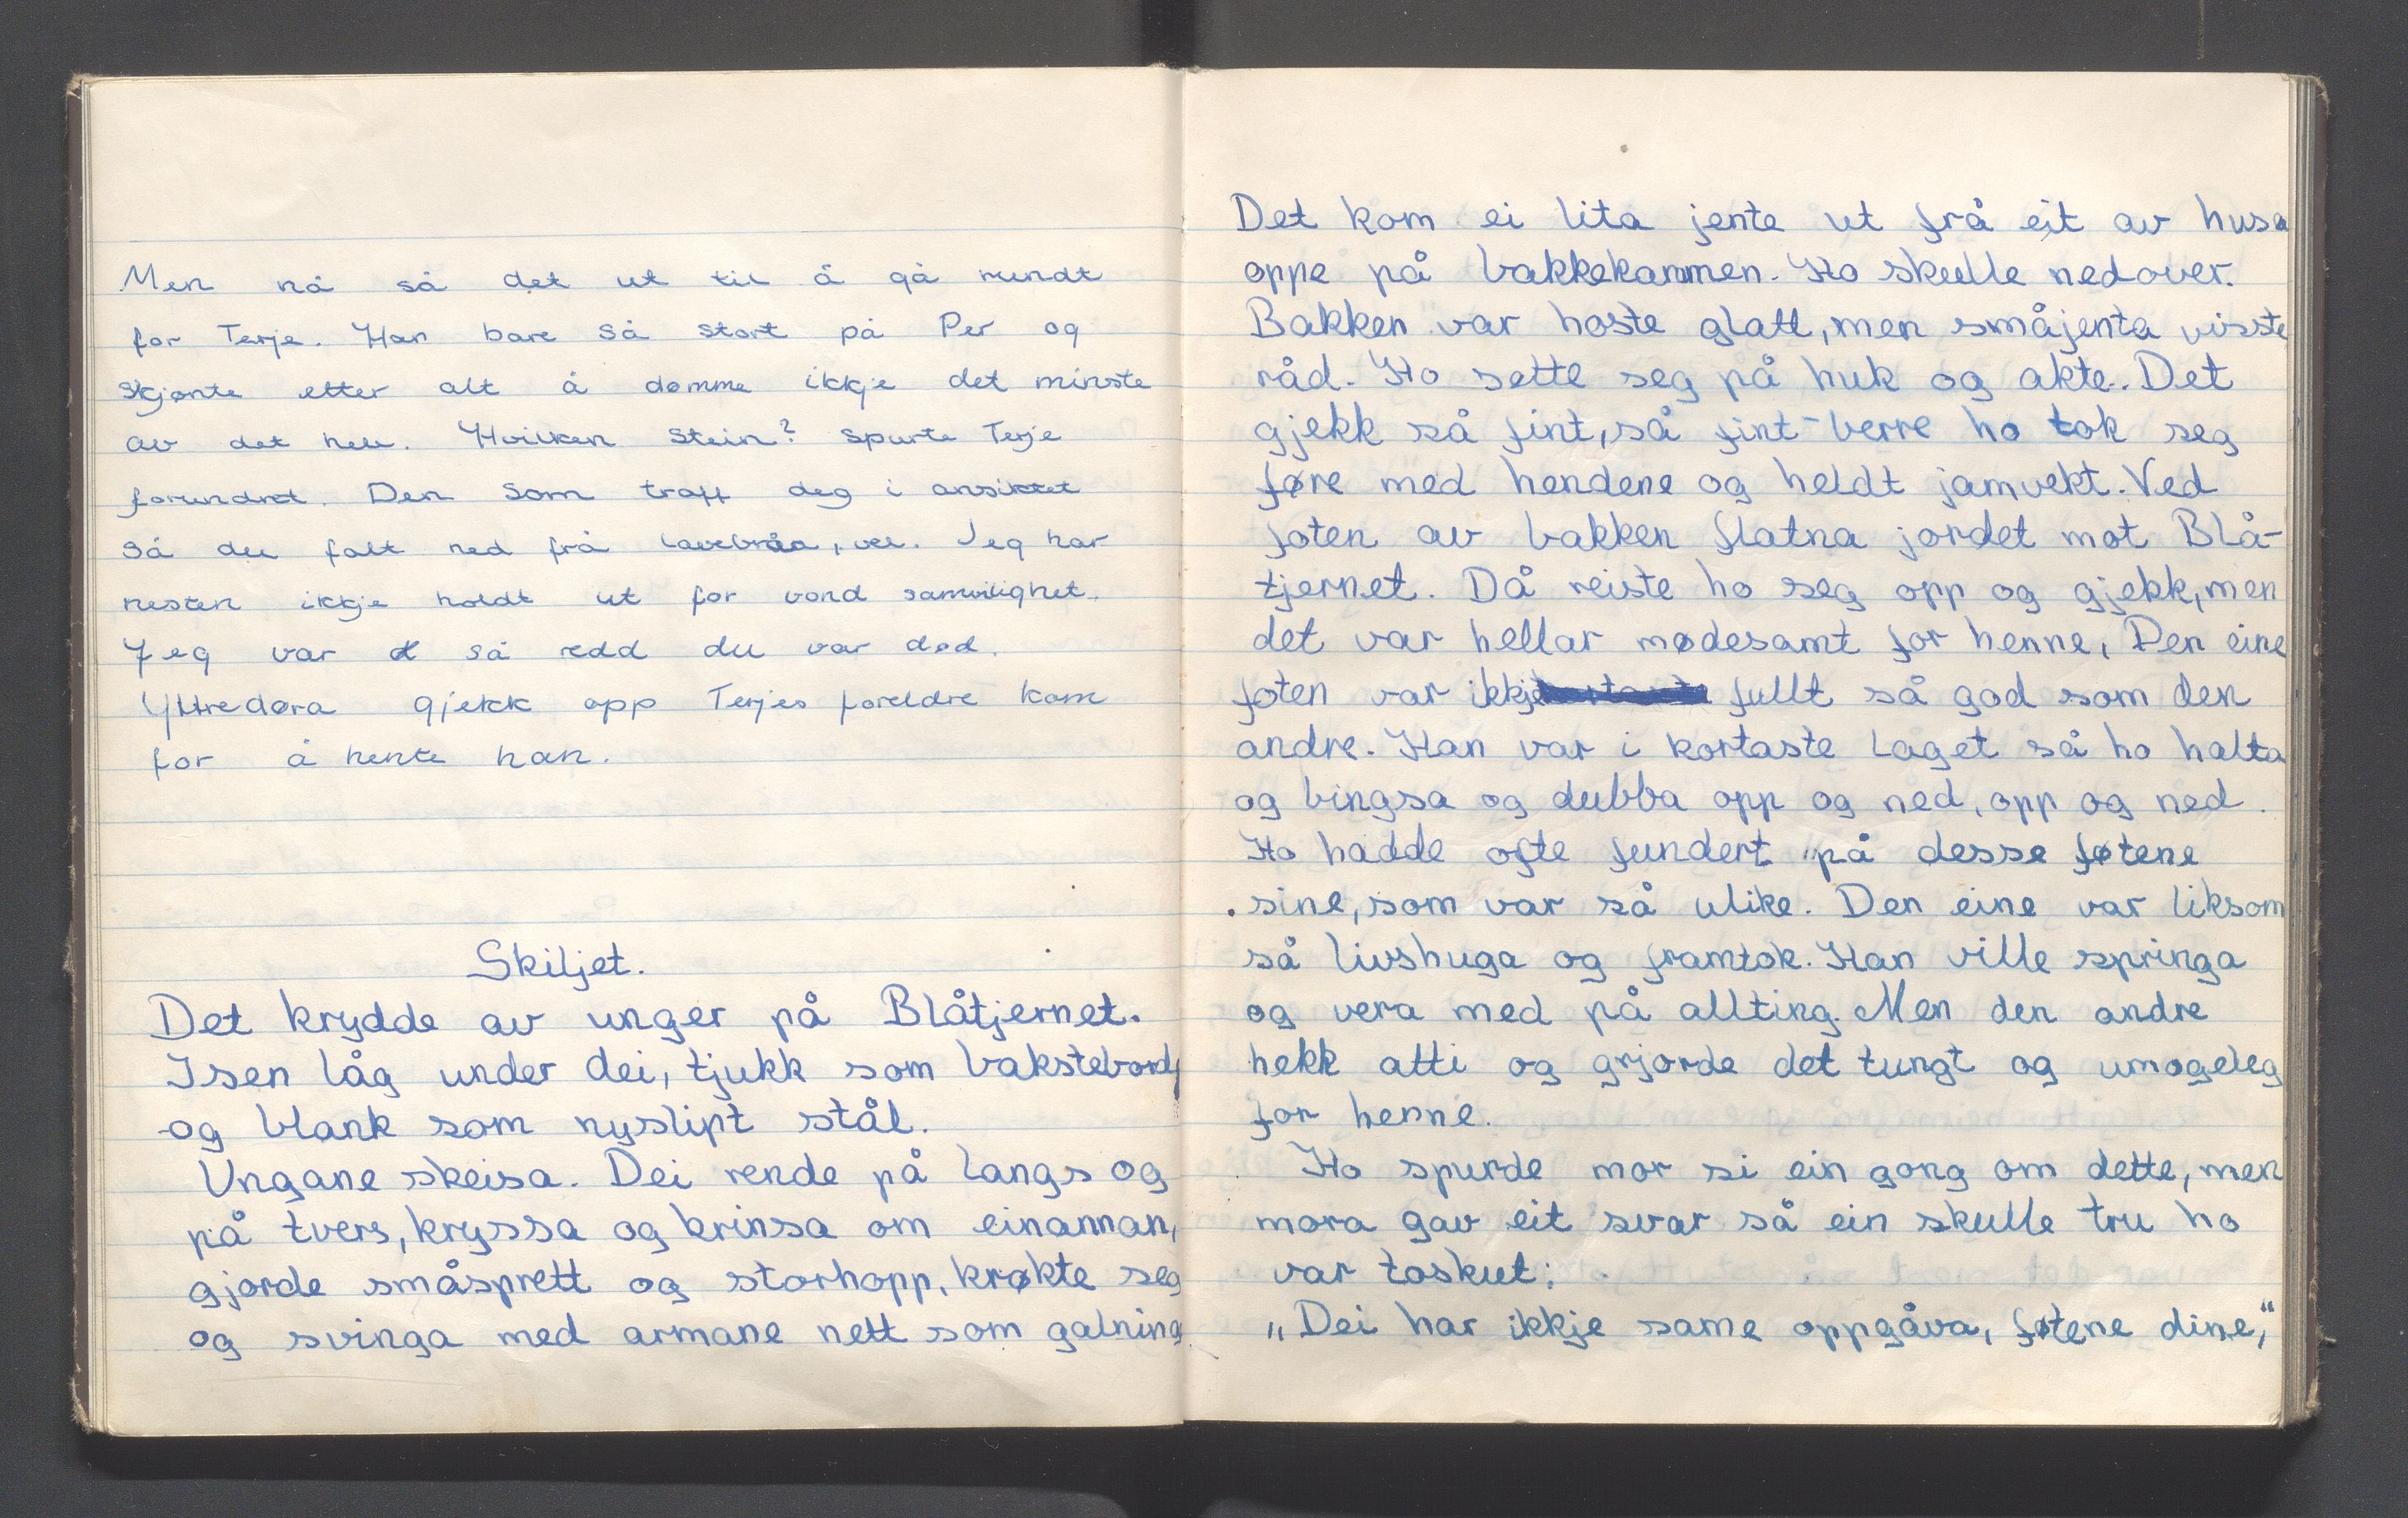 Men nå så det ut til å gå rundt
for Terje. Han bare så stort på Per og
skjønte etter alt å dømme ikkje det minste
av det hele. Hvilken stein? spurte Terje
forundret. Den som traff deg i ansiktet
så du falt ned frå lavebråa, vel. Jeg har
nesten ikkje holdt ut for vond samvilighet.
Jeg var så redd du var død.
Yttredøra gjekk opp Terjes foreldre kom
for å hente han.
Skiljet.
Det krydde av unger på Blåtjernet.
Isen låg under dei, tjukk som bakstebord
og blank som nyslipt stål.
Ungane skeisa. Dei rende på langs og
på tvers, kryssa og krinsa om einannan,
gjorde småsprett og storhopp, krøkte seg
og svinga med armane nett som galning
Det kom ei lita jente ut frå eit av husa
oppe på bakkekammen. Ho skulle nedover.
Bakken var hoste glatt, men småjenta visste
råd. Ho sette seg på huk og akte. Det
gjekk så fint, så fint - berre ho tok seg
føre med hendene og heldt jamvekt. Ved
foten av bakken flatna jordet mot Blå-
tjernet. Då reiste ho seg opp og gjekk, men
det var hellar mødesamt for henne, Den eine
foten var ikkje fullt så god som den
andre. Han var i kortaste laget så ho halta
og bingsa og dubba opp og ned, opp og ned.
Ho hadde ofte fundert på desse føtene
sine, som var så ulike. Den eine var liksom
så livshuga og framtok. Han ville springa
og vera med på allting. Men den andre
hekk atti og grjorde det tungt og umogeleg
for henne.
Ho spurde mor si ein gong om dette, men
mora gav eit svar så ein skulle tru ho
var toskut:
„Dei har ikkje same oppgåva, føtene dine,"